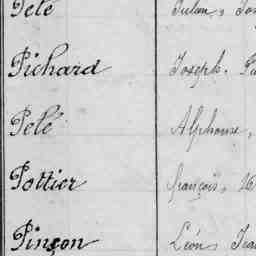 Pelé
Pichard Joseph.
Pelé Alphonse,
Pottier françois,
Pinçon Léon,